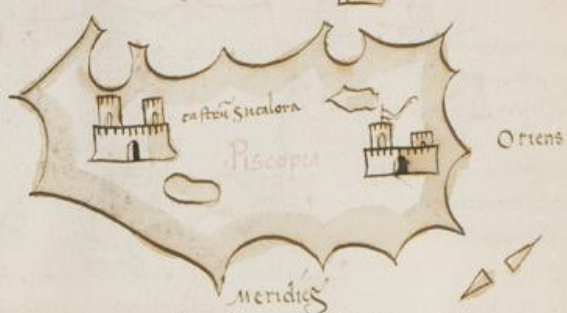 castrũ Sucalora
Piscopia
Oriens
Meridies